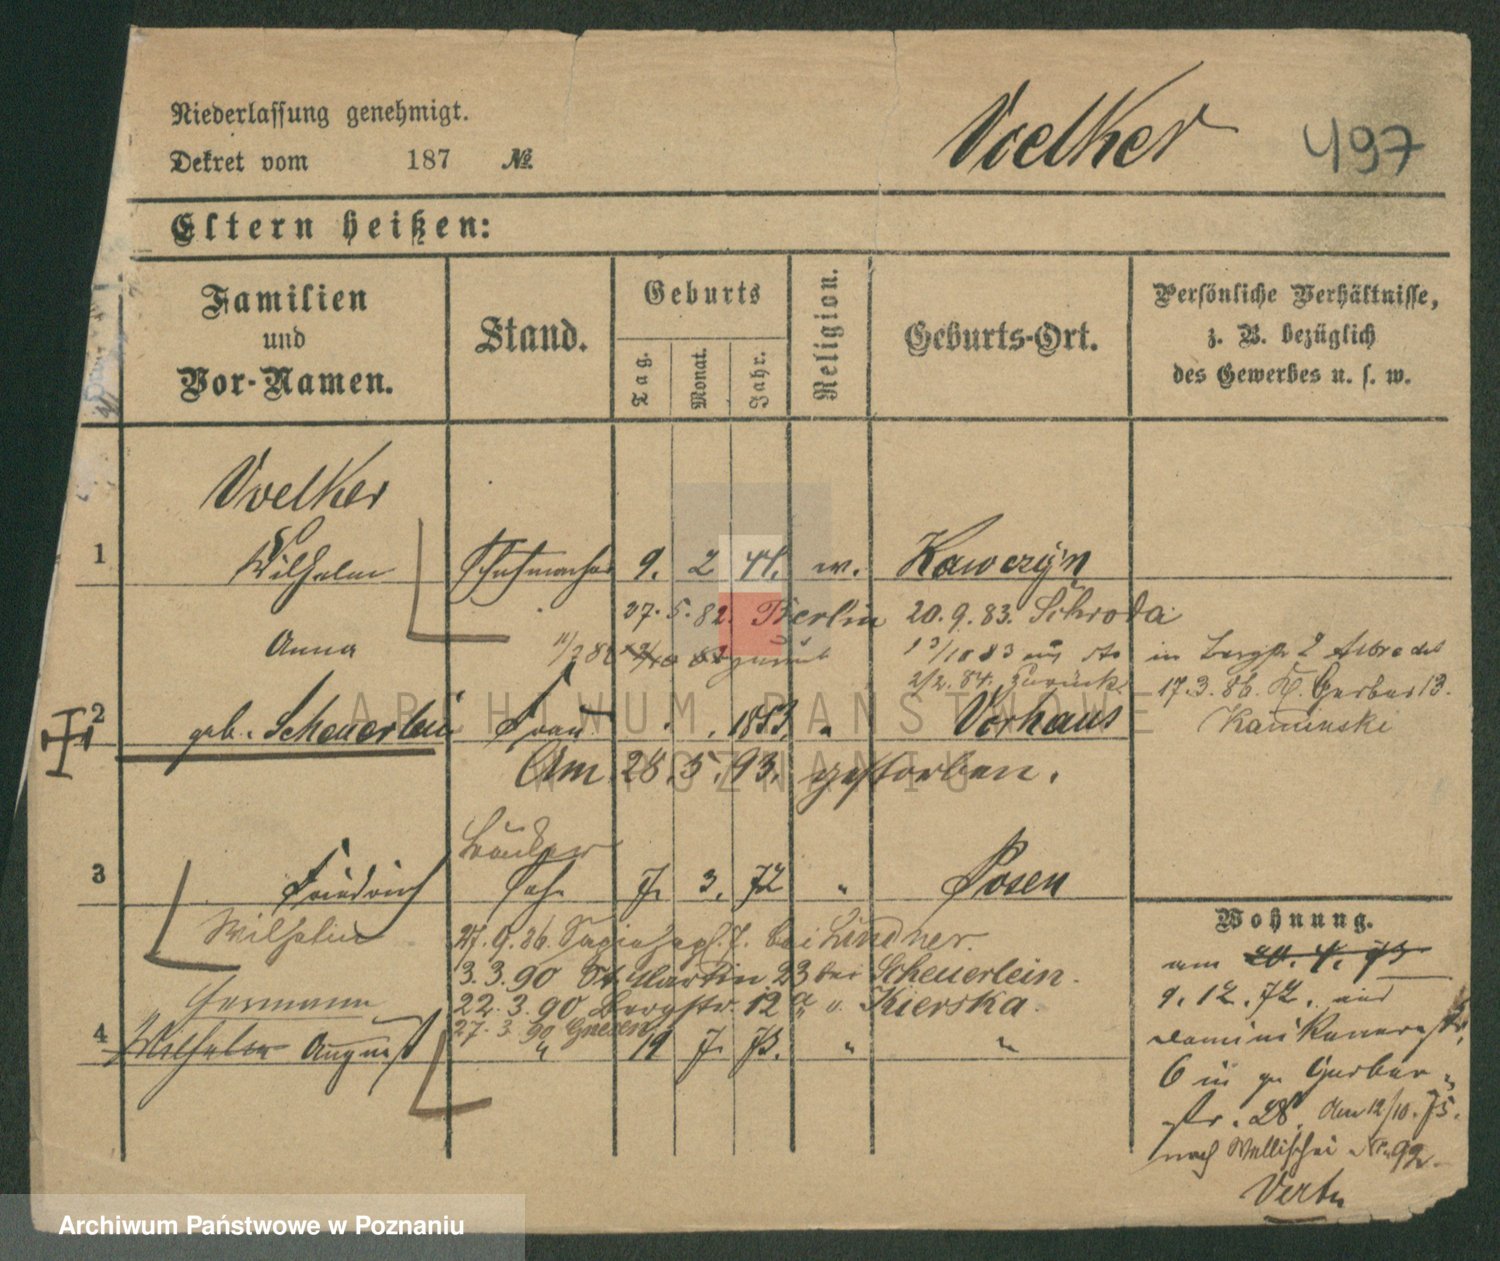 Niederlassung genehmigt.
Dekret vom 187 №.
Voelker 497
Eltern heißen:
Familien und Vor-Namen.
Stand.
Geburts
Tag.
Monat.
Jahr.
Religion.
Geburts-Ort.
Persönliche Verhältnisse,
z. B. bezüglich
des Gewerbes u. s. w.
Voelker
1 Wilhelm Schuhmacher 9. 2 44. w. Kawczyn
27. 5. 82. Berlin 20. 9. 83. Schroda
Anna
zurück
2/2. 84. Zurück
17. 3. 86. Gerber 13.
Kaminski
2 geb. Scheuerlein Frau 1853. " Vorhaus
Am 28. 5. 93. gestorben.
3 Friedrich Sohn 7. 3. 72 " Posen
Wilhelm
27. 9. 86. bei Lindner.
3. 3. 90 St Martin 23 bei Scheuerlein.
22. 3. 90 Bergstr. 12 a Kierska.
27. 3. 90 Gnesen
Hermann
4 Wilhelm August " 19 7. 73. " "
Wohnung.
am 20. 4. 73
9. 12. 72. aus
Dominikanerstr.
6 in gr Gerber
str. 28. Am 12/10. 75.
nach Wallischei Nr. 92.
ARCHIWUM PAŃSTWOWE
W POZNANIU
Archiwum Państwowe w Poznaniu